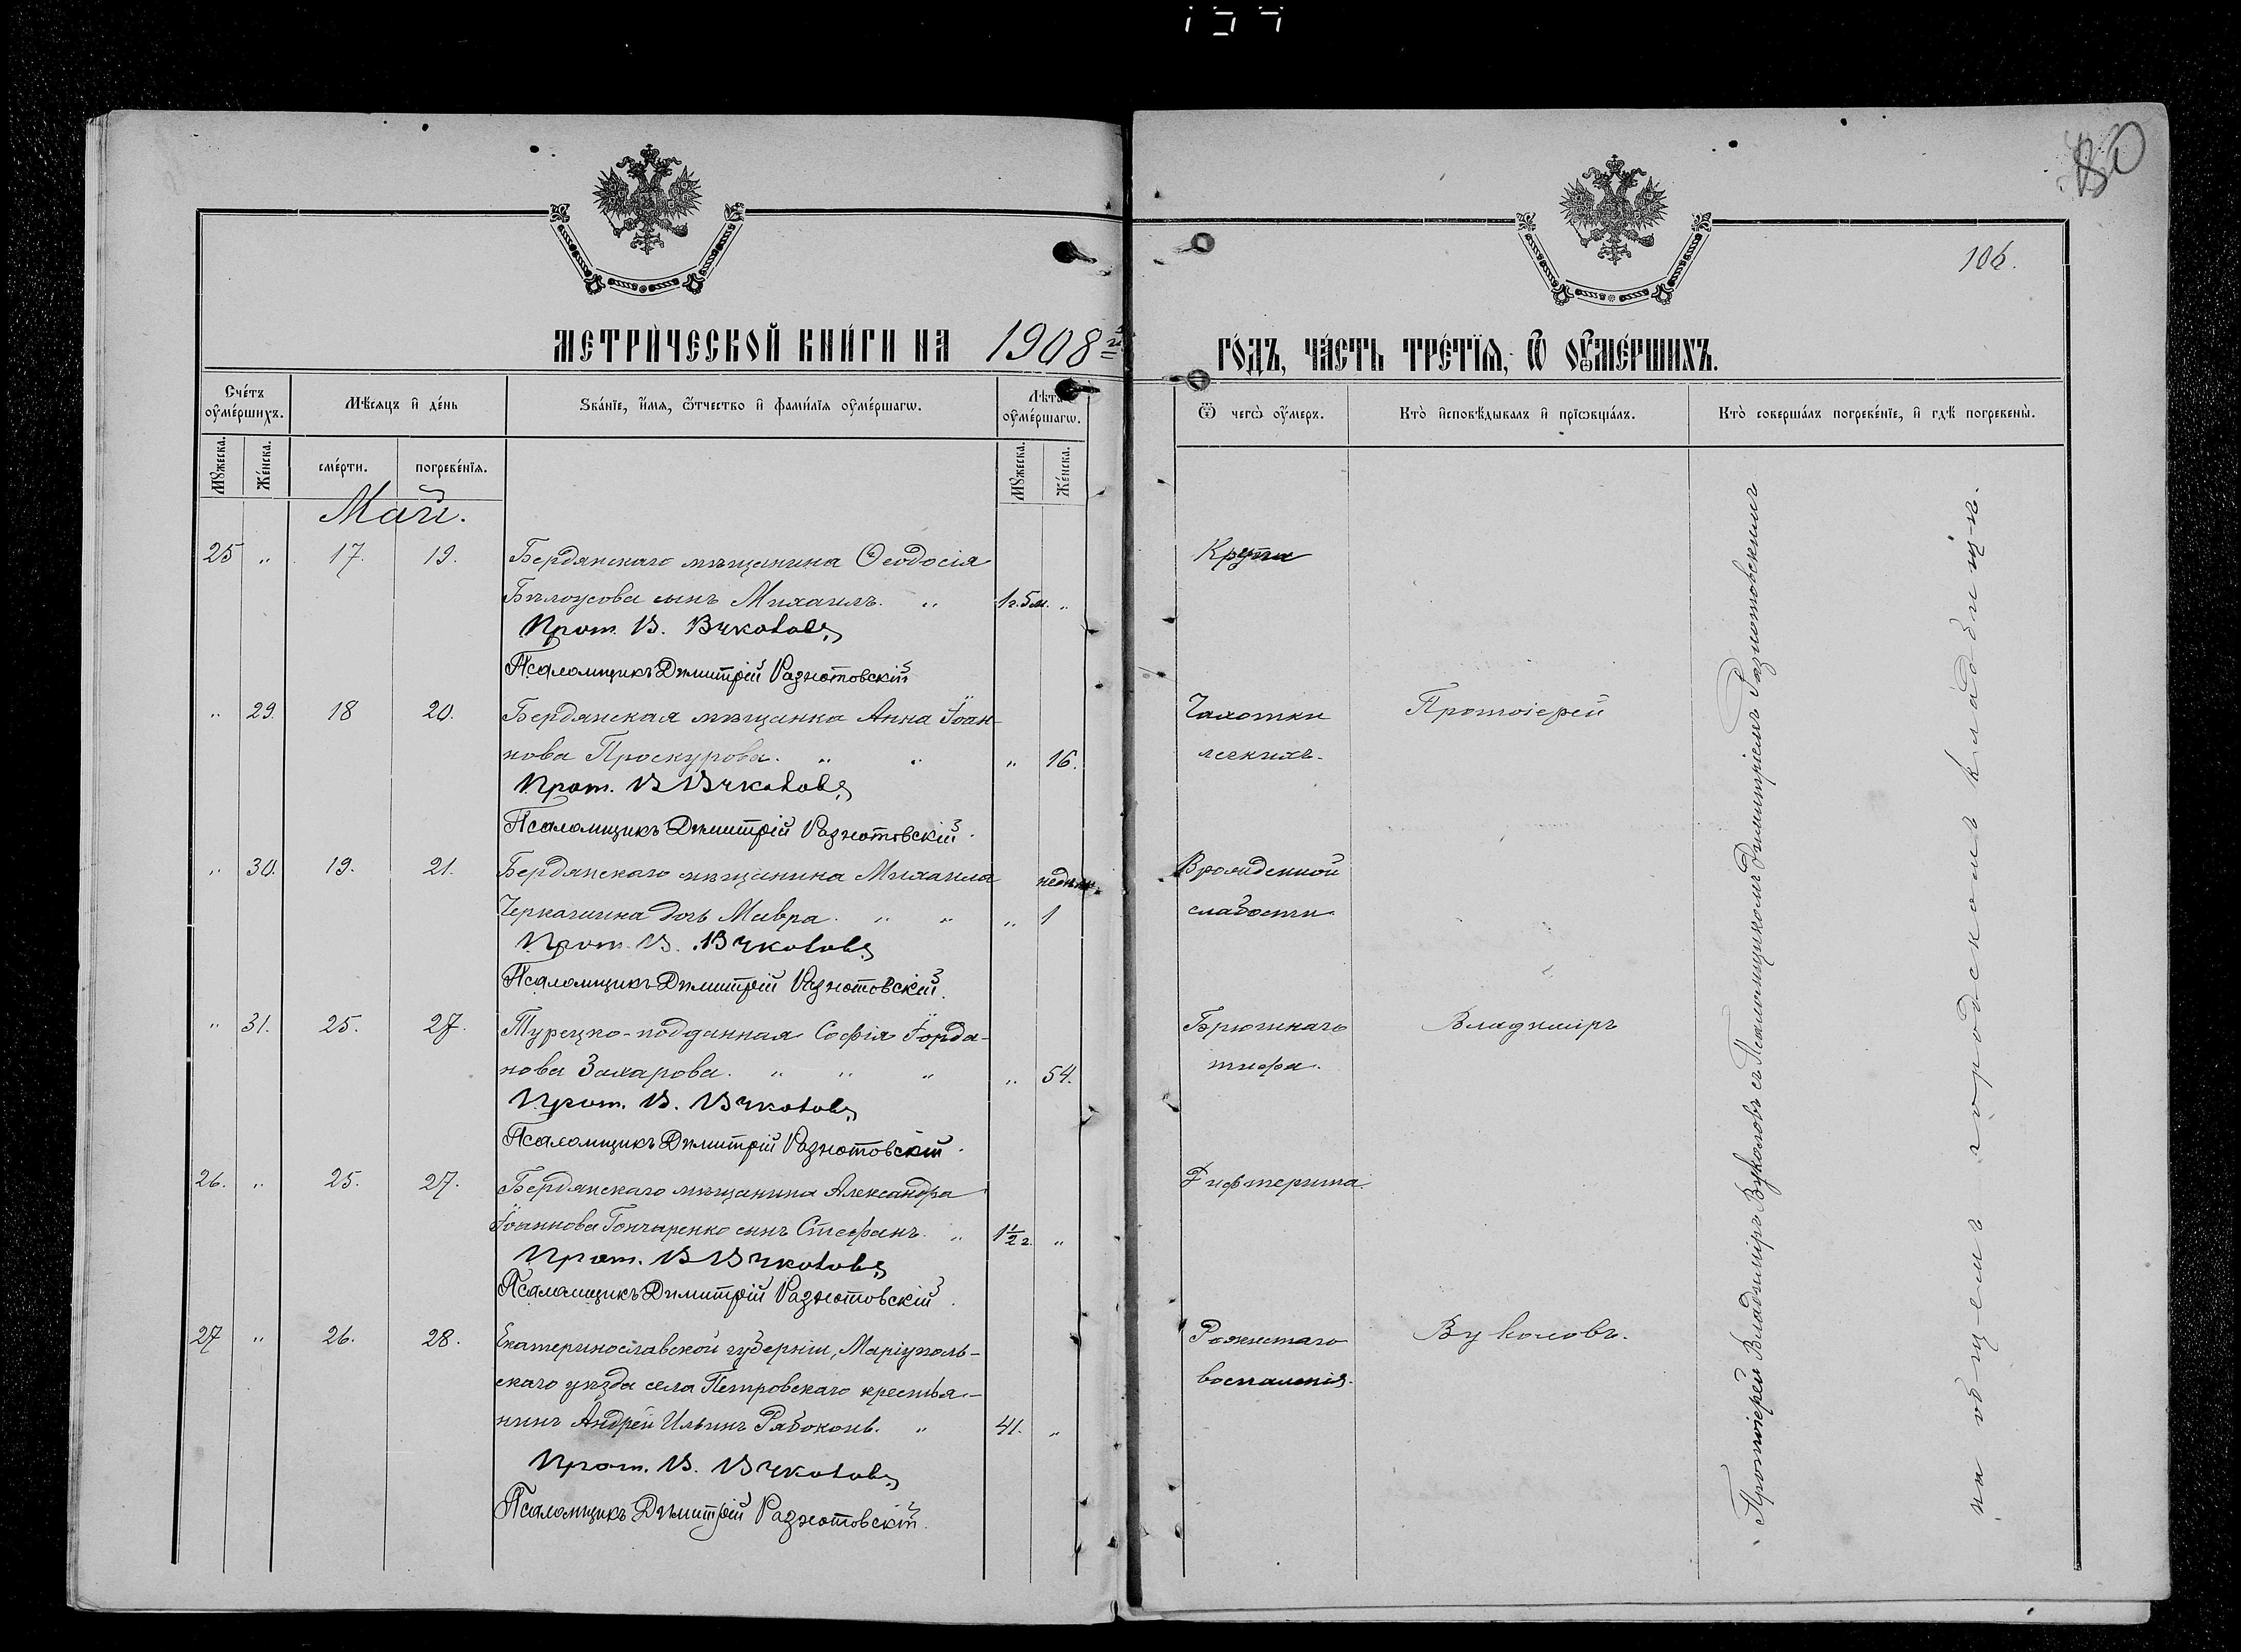 80
106.
МЕТРИЧЕСКОЙ КНИГИ НА 1908 г.
ГОДЪ, ЧАСТЬ ТРЕТІЯ, Ѿ ОУМЕРШИХЪ.
Счётъ оумершихъ.
Мѣсяцъ и день
Званіе, имя, отчество и фамилія оумершагѡ.
Лѣта оумершагѡ.
Ѿ чегѡ оумеръ.
Кто исповѣдывалъ и пріѡбщалъ.
Кто совершалъ погребеніе, и гдѣ погребены.
Мужеска. Женска. смерти. погребенія. Мужеска. Женска.
Май.
25 " 17. 19. Бердянскаго мѣщанина Ѳеодосія Крупа
Бѣлоусова сынъ Михаилъ. " 1г.5м. "
Прот. В. Вуколовъ
Псаломщикъ Димитрій Разнотовскій
" 29. 18 20. Бердянская мѣщанка Анна Іоан- Чахотки Протоіерей
нова Проскурова. " " " 16. легкихъ.
Прот. В Вуколовъ
Псаломщикъ Димитрій Разнотовскій.
" 30. 19. 21. Бердянскаго мѣщанина Михаила недѣл. Врожденной
дочь Мавра. " " " 1 слабости
Прот. В. Вуколовъ
Псаломщикъ Димитрій Разнотовскій.
" 31. 25. 27. Турецко-подданная Софія Іорда- Брюшнаго Владиміръ
нова Захарова. " " " " 54. тифа.
Прот. В. Вуколовъ
Псаломщикъ Димитрій Разнотовскій.
26. " 25. 27. Бердянскаго мѣщанина Александра Дифтерита.
Іоаннова Гончаренко сынъ Стефанъ. " 1½ г. "
Прот. В Вуколовъ
Псаломщикъ Димитрій Разнотовскій.
27 " 26. 28. Екатеринославской губерніи, Маріуполь- Рожистаго Вуколовъ.
скаго уѣзда села Петровскаго крестья- воспаленія.
нинъ Андрей Ильинъ Рябоконь. " 41. "
Прот. В. Вуколовъ
Псаломщикъ Димитрій Разнотовскій.
Протоіерей Владиміръ Вуколовъ съ Псаломщикомъ Димитріемъ Разнотовскимъ
на общемъ городскомъ кладбищѣ.